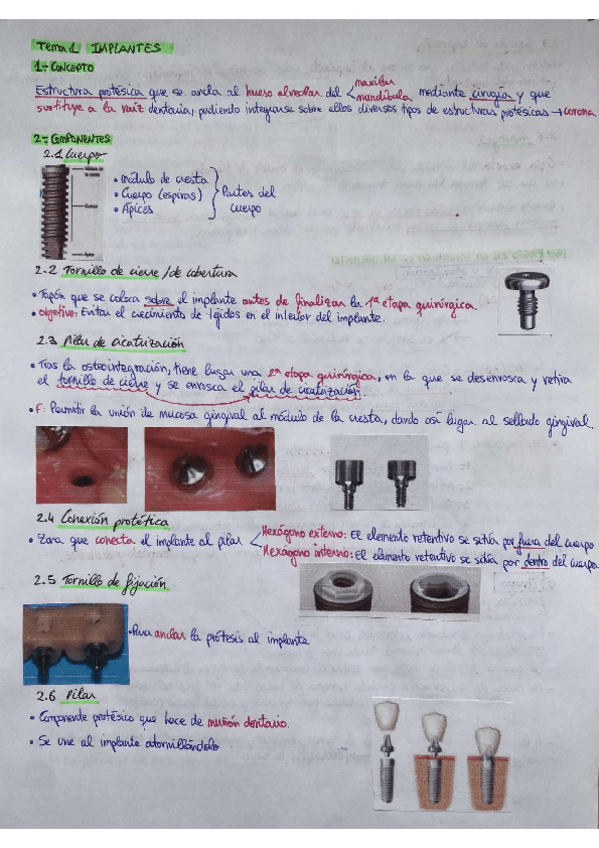 Tema 1 IMPLANTES
1.- CONCEPTO
Estructura protésica que se ancla al hueso alveolar del < maxilar
mandíbula mediante cirugía y que
sustituye a la raíz dentaria, pudiendo integrarse sobre ellos diversos tipos de estructuras protésicas → corona
2.- COMPONENTES
2.1 Cuerpo
Módulo de la cresta
Cuerpo
Ápice
• Módulo de cresta
• Cuerpo (espiras)
• Ápices
Partes del
cuerpo
2.2 Tornillo de cierre / de cobertura
• Tapón que se coloca sobre el implante antes de finalizar la 1ª etapa quirúrgica.
• Objetivo: Evitar el crecimiento de tejidos en el interior del implante.
2.3 Pilar de cicatrización
• Tras la osteointegración, tiene lugar una 2ª etapa quirúrgica, en la que se desenrosca y retira
el tornillo de cierre y se enrosca el pilar de cicatrización.
• F: Permitir la unión de mucosa gingival al módulo de la cresta, dando así lugar al sellado gingival.
2.4 Conexión protética
• Zona que conecta el implante al pilar < Hexágono externo: El elemento retentivo se sitúa por fuera del cuerpo
Hexágono interno: El elemento retentivo se sitúa por dentro del cuerpo.
2.5 Tornillo de fijación
• Para anclar la prótesis al implante
2.6 Pilar
• Componente protésico que hace de muñón dentario.
• Se une al implante atornillándolo